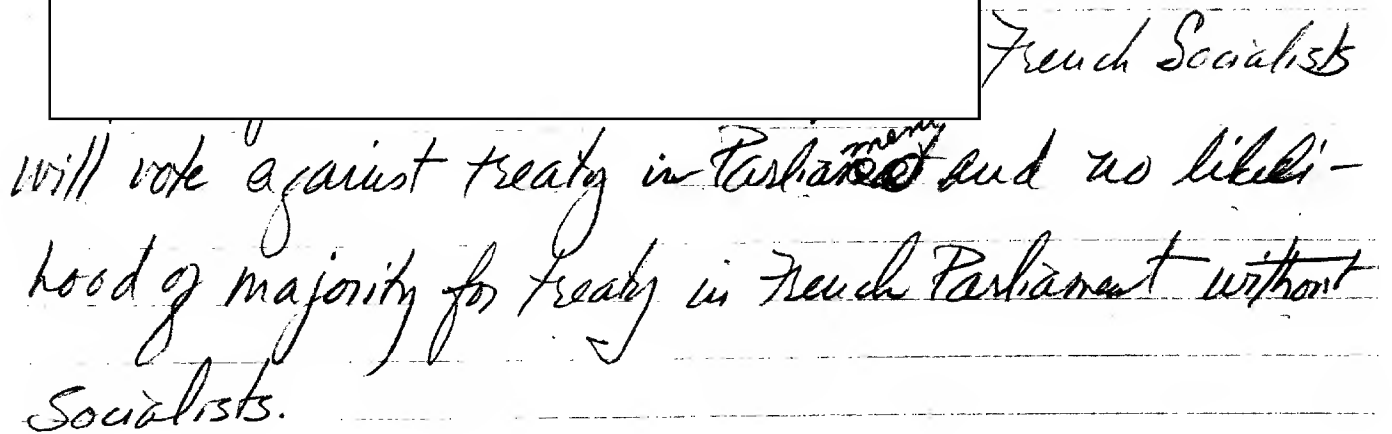 French Socialists
will vote against treaty in Parliament and no likeli-
hood of majority for treaty in French Parliament without
Socialists.